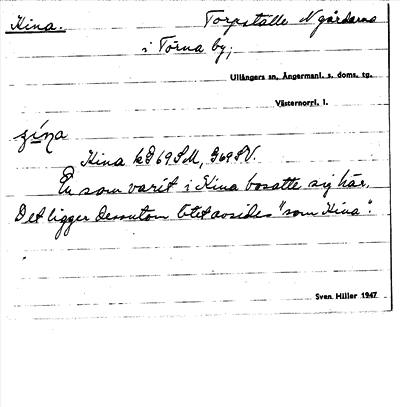 Kina. Torpställe N gårdarna
i Törna by,
Ullångers sn, Ångermanl. s. doms. tg.
Västernorrl. l.
Kina kD69SM, J69SV.
En som varit i Kina bosatte sig här.
Det ligger dessutom litet avsides "som Kina".
Sven Hiller 1947